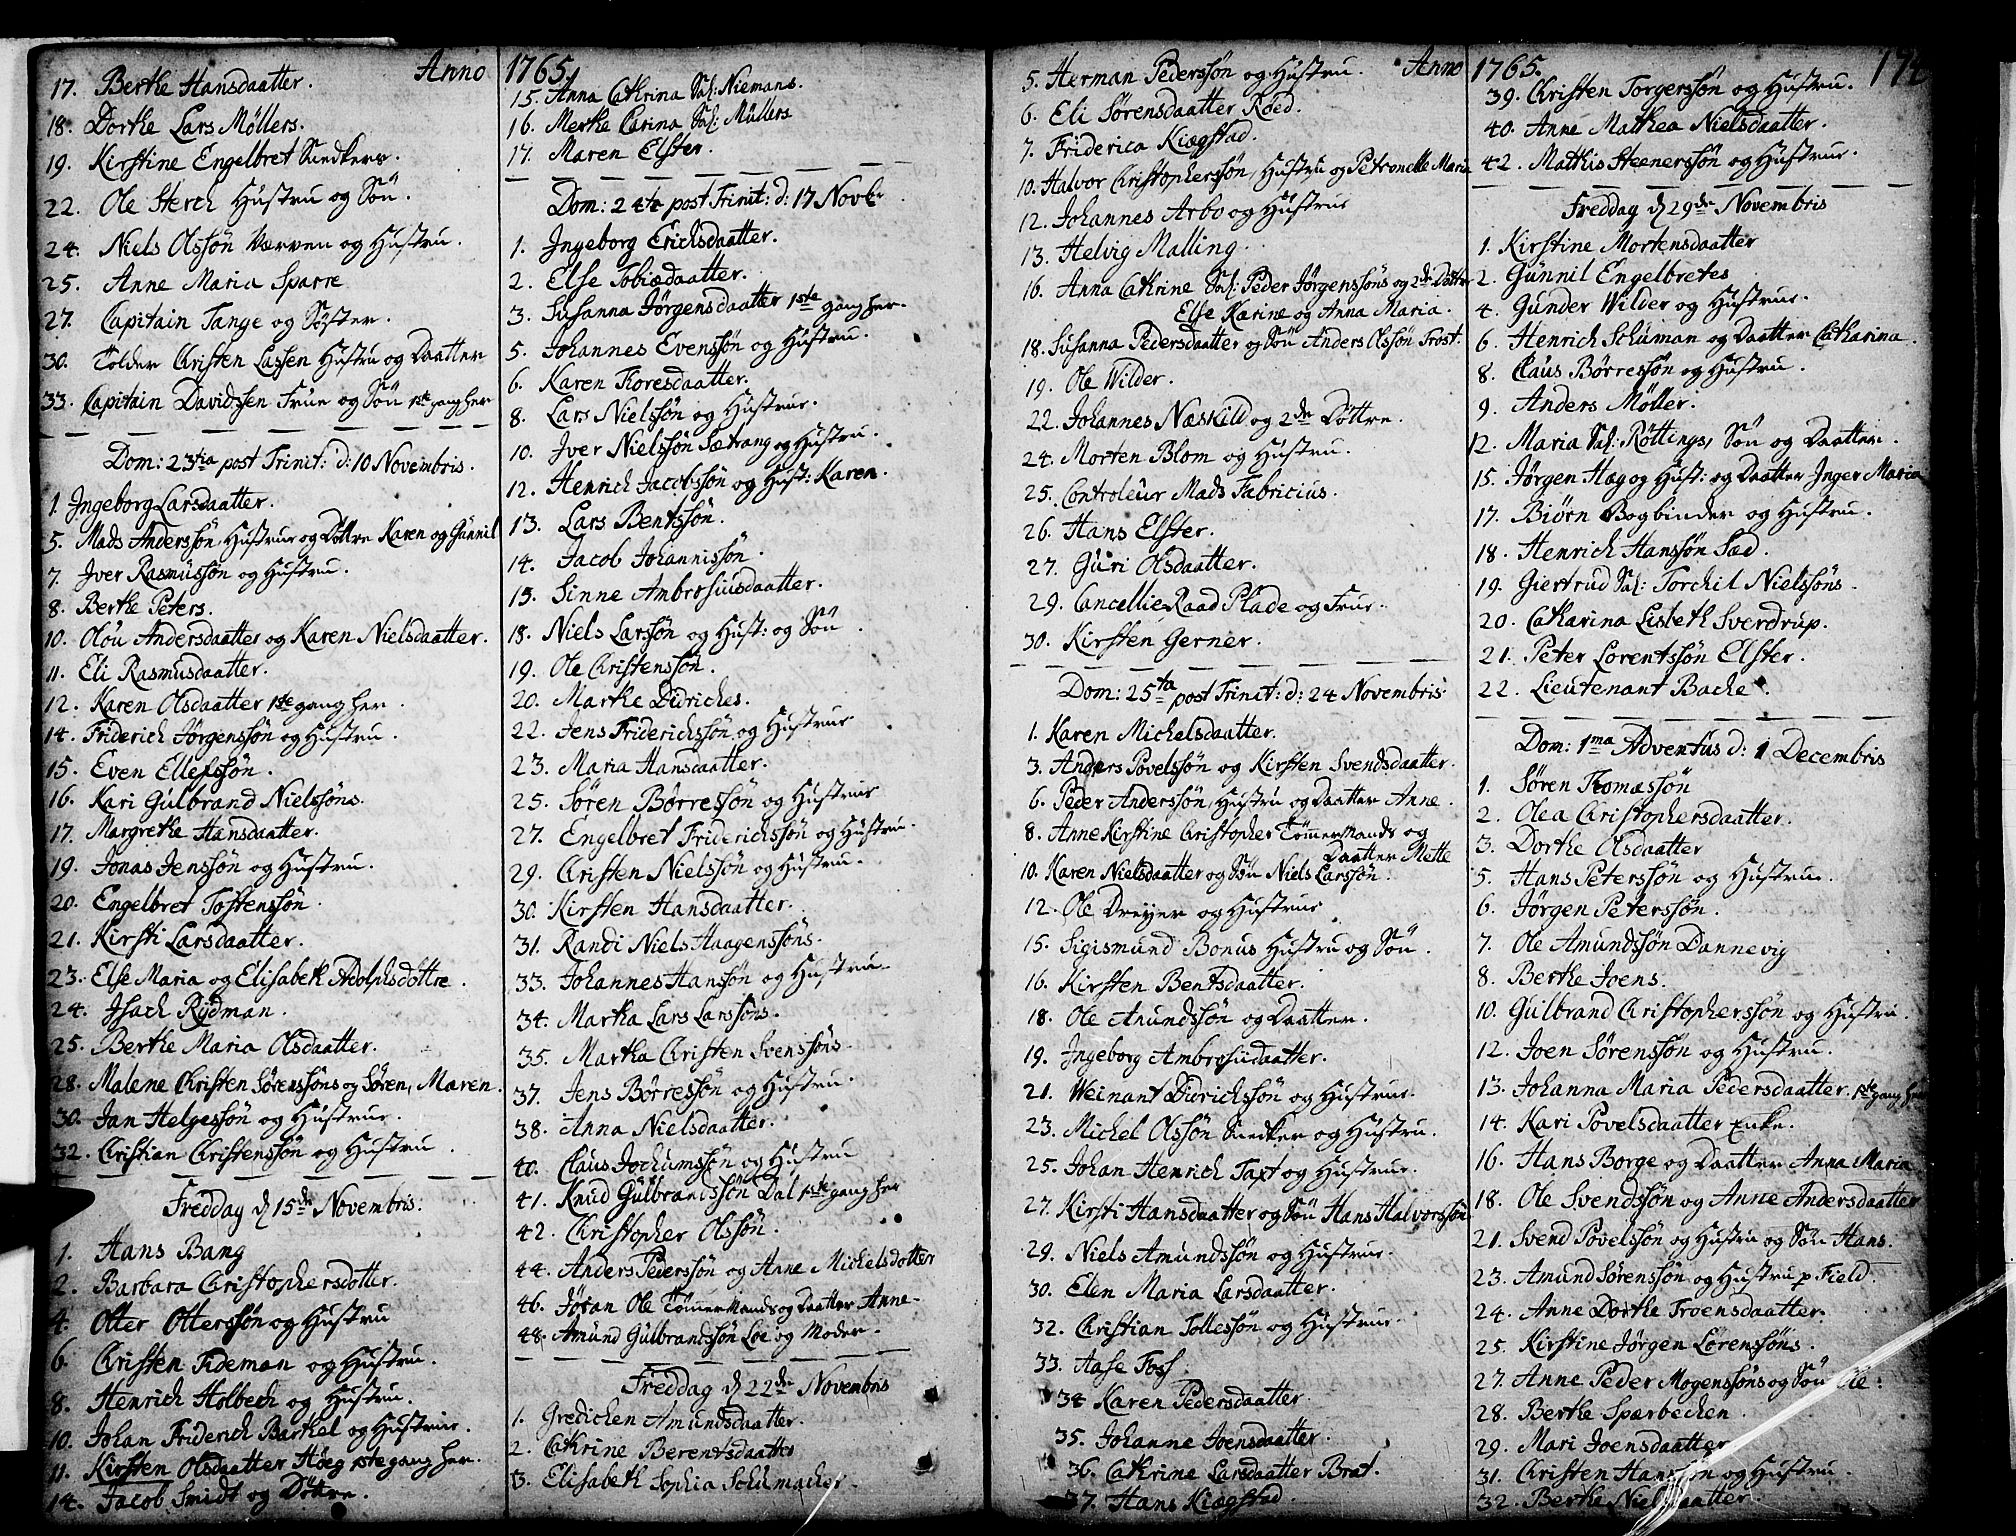 Anno 1765.
17. Berthe Hansdaatter.
18. Dorthe Lars Møllers.
19. Kirstine Engelbret Snedkers.
22. Ole Sterch Hustru og Søn.
24. Niels Olssøn Værven og Hustru.
25. Anne Maria Sparre
27. Capitain Tange og Søster.
30. Tolder Christen Lassen Hustru og Daatter
33. Capitain Davidssen Frue og Søn 1ste gang her
Dom: 23tia post Trinit: d: 10 Novembris.
1. Ingeborg Larsdaatter.
5. Mads Anderssøn, Hustrue og Døttre Karen og Gunnil
7. Iver Rasmussøn og Hustru.
8. Berthe Peters.
10. Olou Andersdaatter og Karen Nielsdaatter.
11. Eli Rasmusdaatter.
12. Karen Olsdaatter 1ste gang her.
14. Friderich Jørgenssøn og Hustru.
15. Even Ellefssøn.
16. Kari Gulbrand Nielssøns.
17. Margrethe Hansdaatter.
19. Jonas Jenssøn og Hustru.
20. Engelbret Tostenssøn.
21. Kirsti Larsdaatter.
23. Else Maria og Elisabeth Adolphsdøttre.
24. Isach Rydman.
25. Berthe Maria Olsdaatter.
28. Malene Christen Sørenssøns og Søren, Maren.
30. Jan Helgessøn og Hustrue.
32. Christian Christenssøn og Hustru.
Freddag d 15de Novembris:
1. Hans Bang
2. Barbara Christophersdotter.
4. Otter Otterssøn og Hustru
6. Christen Tideman og Hustru.
8. Henrich Holbech og Hustru.
10. Johan Friderich Barthel og Hustrue.
11. Kirsten Olsdaatter Høeg 1ste gang her.
14. Jacob Smidt og Døttre.
15. Anna Cathrina Sal: Niemans.
16. Merthe Carina Sal: Müllers
17. Maren Elster.
Dom: 24te post Trinit: d: 17 Novbr
1. Ingeborg Erichsdaatter.
2. Else Tobiædaatter.
3. Susanna Jørgensdaatter 1ste gang her.
5. Johannes Evenssøn og Hustru.
6. Karen Thoresdaatter.
8. Lars Nielssøn og Hustrue.
10. Iver Nielssøn Sætrang og Hustru.
12. Henrich Jacobssøn og Hust: Karen.
13. Lars Bentssøn.
14. Jacob Johannissøn.
15. Sinne Ambrosiusdaatter.
18. Niels Larssøn og Hust: og Søn
19. Ole Christenssøn.
20. Marthe Didriches.
22. Jens Friderichssøn og Hustrue
23. Maria Hansdaatter.
25. Søren Børressøn og Hustrue
27. Engelbret Friderichssøn og Hustru.
29. Christen Nielssøn og Hustru.
30. Kirsten Hansdaatter.
31. Randi Niels Haagenssøns.
33. Johannes Hanssøn og Hustru.
34. Martha Lars Larssøns.
35. Martha Christen Svenssøns.
37. Jens Børressøn og Hustru.
38. Anna Nielsdaatter.
40. Claus Jochumssøn og Hustru
41. Knud Gulbrandssøn Dal 1ste gang her
42. Christopher Olssøn.
44. Anders Pederssøn og Anne Michelsdotter
46. Jøran Ole Tømmermands og Daatter Anne.
48. Amund Gulbrandssøn Loe og Moder.
Freddag d 22de Novembris
1. Gredichen Amundsdaatter.
2. Cathrine Berentsdaatter
3. Elisabeth Sophia Schumacher.
Anno 1765. 174
5. Herman Pederssøn og Hustru.
6. Eli Sørensdaatter Røed.
7. Friderica Kiøgstad.
10. Halvor Christopherssøn, Hustru og Petronelle Maria
12. Johannes Arbo og Hustrue
13. Helvig Malling.
16. Anna Cathrine Sal: Peder Jørgenssøns og 2de Døttre
Else Karine og Anna Maria.
18. Susanna Pedersdaatter og Søn Anders Olssøn Frost.
19. Ole Wilder.
22. Johannes Næskild og 2de Døttre.
24. Morten Blom og Hustru.
25. Controleur Mads Fabricius.
26. Hans Elster.
27. Guri Olsdaatter.
29. Cancellie Raad Plade og Frue.
30. Kirsten Gerner.
Dom: 25ta post Trinit: d: 24 Novembris
1. Karen Michelsdaatter.
3. Anders Povelssøn og Kirsten Svendsdaatter.
6. Peder Anderssøn, Hustru og Daatter Anne.
8. Anne Kirstine Christopher Tømmermands og
Daatter Mette
10. Karen Nielsdaatter og Søn Niels Larssøn.
12. Ole Dreyer og Hustrue
15. Sigismund Bonus Hustru og Søn.
16. Kirsten Bentsdaatter.
18. Ole Anundssøn og Daatter.
19. Ingeborg Ambrosiidaatter.
21. Weinant Didrichssøn og Hustrue.
23. Michel Olssøn Snedker og Hustru.
25. Johan Henrich Taxt og Hustrue.
27. Kirsti Hansdaatter og Søn Hans Halvorssøn
29. Niels Amundssøn og Hustrue.
30. Elen Maria Larsdaatter.
32. Christian Tollessøn og Hustrue.
33. Aase Foss.
34 Karen Pedersdaatter
35. Johanne Joensdaatter.
36. Cathrine Larsdaatter Brat.
37. Hans Kiøgstad
39. Christen Torgerssøn og Hustru.
40. Anne Mathea Nielsdaatter.
42. Mathis Steenerssøn og Hustrue.
Freddag d 29de Novembris
1. Kirstine Mortensdaatter
2. Gunnil Engelbretes
4. Gunder Wilder og Hustrue.
6. Henrich Schuman og Daatter Catharina.
8. Claus Børressøn og Hustru.
9. Anders Møller.
12. Maria Sal: Røttings, Søn og Daatter.
15. Jørgen Hæg og Hust: og Daatter Inger Maria
17. Biørn Bogbinder og Hustru.
18. Henrich Hanssøn Sæd.
19. Giertrud Sal: Torchil Nielssøns.
20. Catharina Lisbeth Sverdrup.
21. Peter Lorentssøn Elster.
22. Lieutenant Bache.
Dom: 1ma Adventus d: 1 Decembris
1. Søren Thomæssøn
2. Olea Christophersdaatter.
3. Dorthe Olsdaatter
5. Hans Peterssøn og Hustrue.
6. Jørgen Peterssøn.
7. Ole Amundssøn Dannevig
8. Berthe Joens.
10. Gulbrand Christopherssøn og Hustru.
12. Joen Sørenssøn og Hustru.
13. Johanna Maria Pedersdaatter 1ste gang her
14. Kari Povelsdaatter Enke.
16. Hans Borge og Daatter Anna Maria
18. Ole Svendssøn og Anne Andersdaatter
21. Svend Povelssøn og Hustru og Søn Hans.
23. Amund Sørenssøn og Hustru p Field.
24. Anne Dorthe Froensdaatter.
25. Kirstine Jørgen Lørenssøns.
27. Anne Peder Mogenssøns og Søn Ole.
28. Berthe Spærbechen.
29. Mari Joensdaatter
31. Christen Hanssøn og Hustru.
32. Berthe Nielsdaatter.